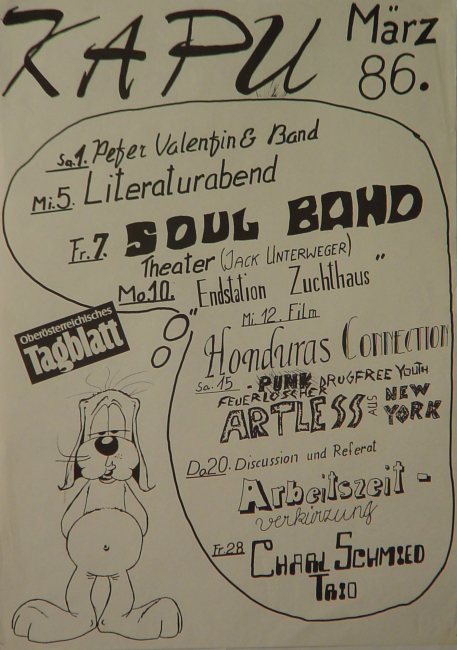 KAPU
März
86.
Sa.1. Peter Valentin & Band
Mi.5. Literaturabend
Fr.7. SOUL BAND
Theater (JACK UNTERWEGER)
Mo.10. "Endstation Zuchthaus"
Mi 12. Film
Honduras CONNECTION
Sa.15 - PUNK DRUGFREE YOUTH
FEUERLÖSCHER
ARTLESS AUS NEW YORK
Da20. Discussion und Referat
Arbeitszeit -
verkürzung
Fr.28 CHARL SCHMIED
TRIO
Oberösterreichisches
Tagblatt